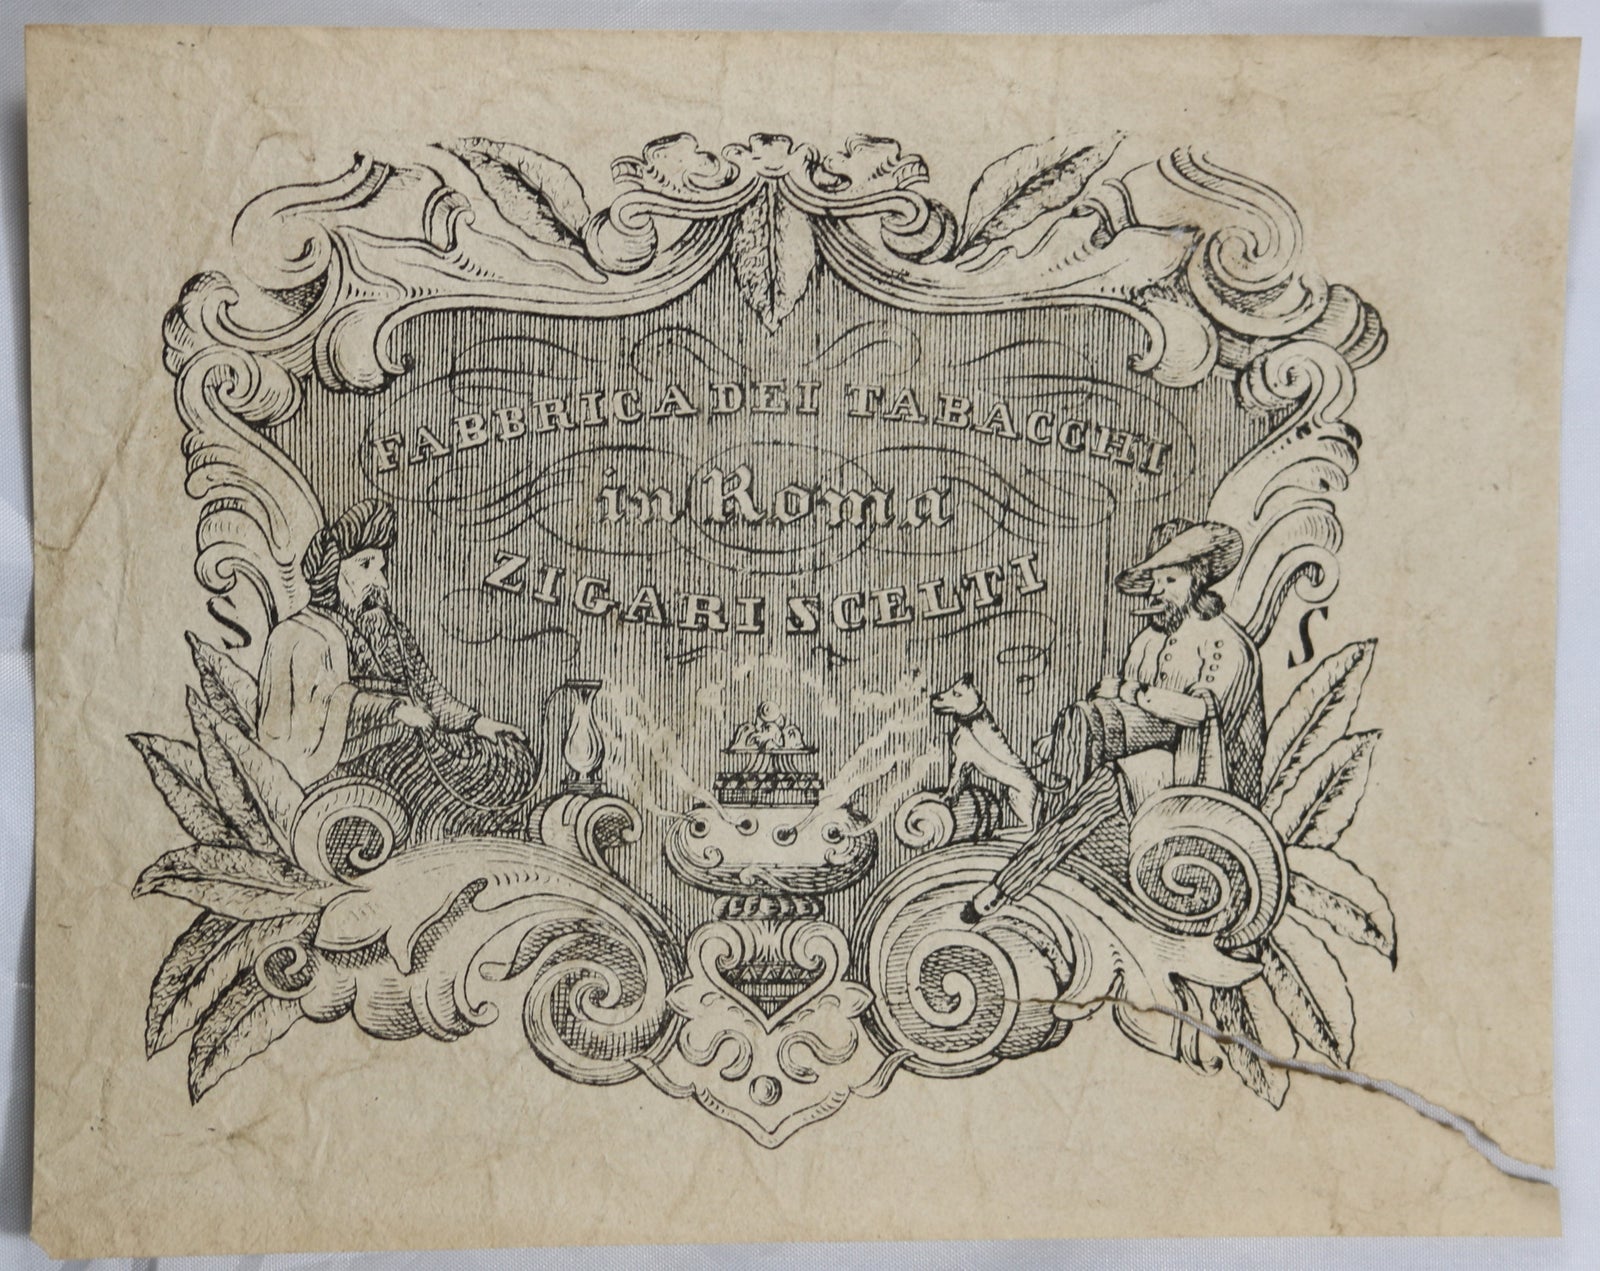 FABBRICA DEI TABACCHI
in Roma
ZIGARI SCELTI
S S